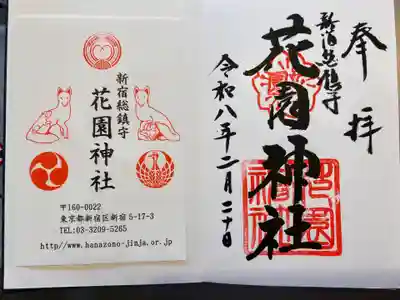 新宿総鎮守
花園神社
〒160-0022
東京都新宿区新宿5-17-3
TEL:03-3209-5265
http//www.hanazono-jinja.or.jp
奉拝
新宿総鎮守
花園神社
令和八年二月二十日